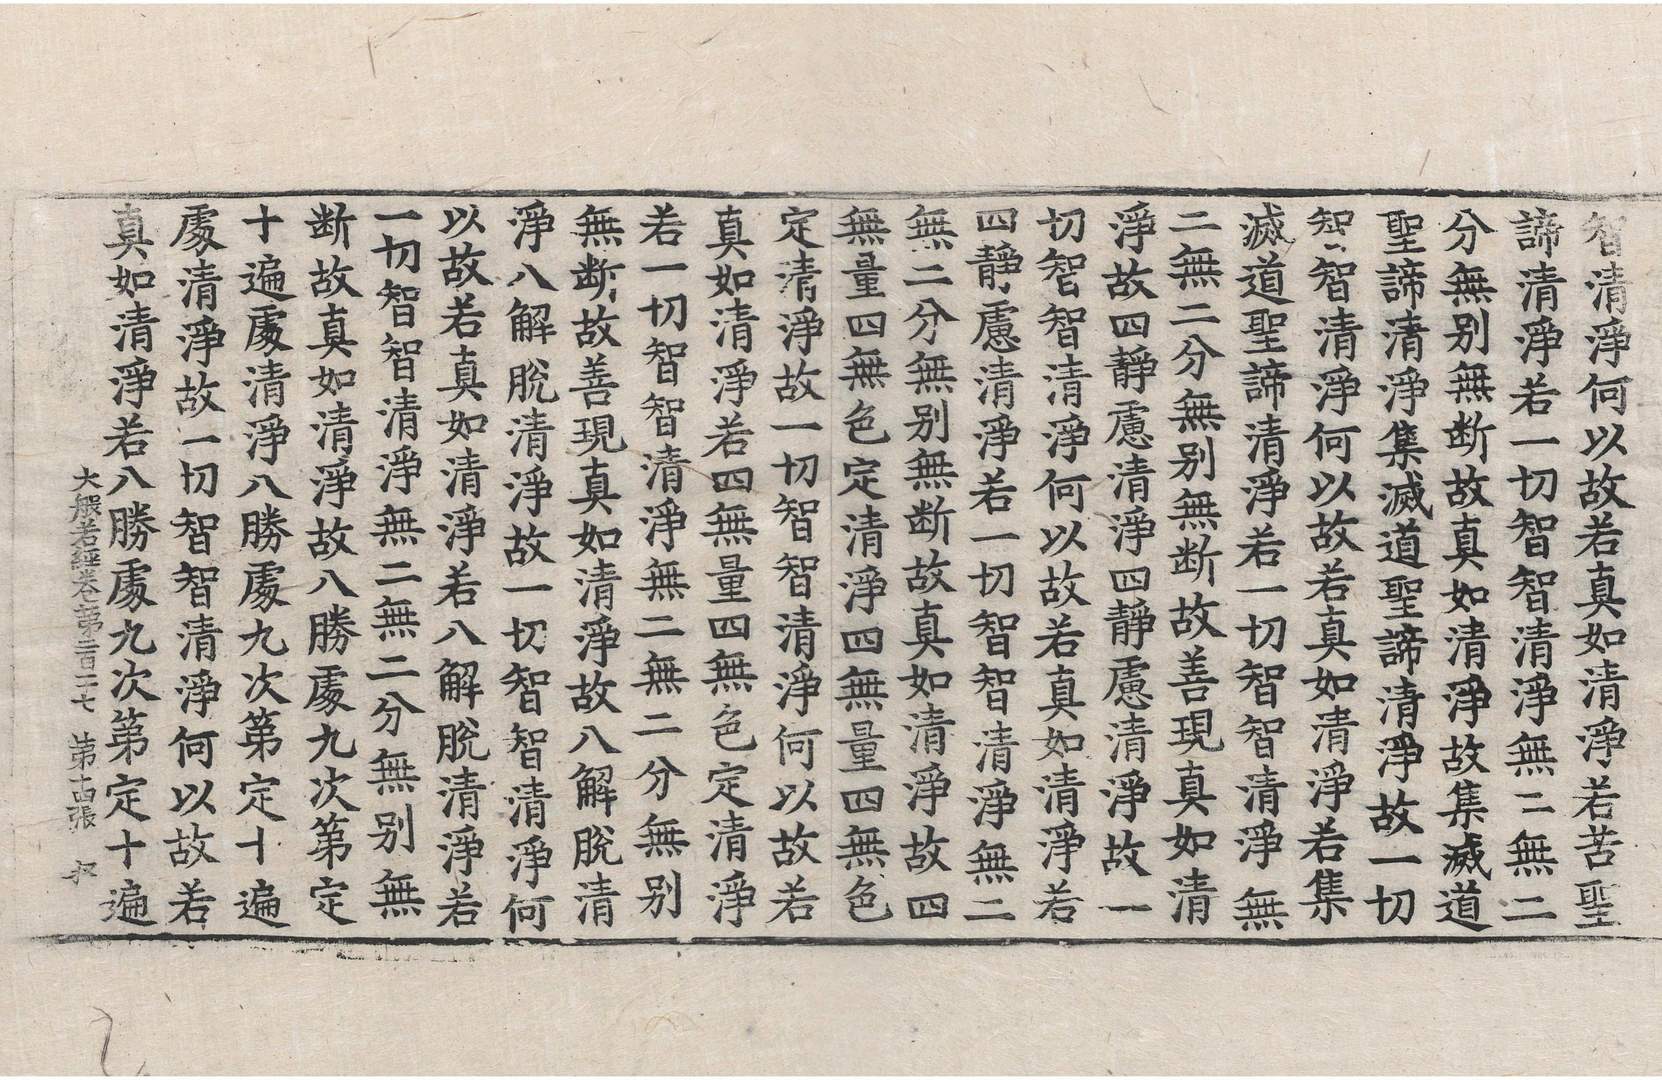 智清淨何以故若真如清淨若苦聖
諦清淨若一切智智清淨無二無二
分無別無断故真如清淨故集滅道
聖諦清淨集滅道聖諦清淨故一切
智智清淨何以故若真如清淨若集
滅道聖諦清淨若一切智智清淨無
二無二分無別無断故善現真如清
淨故四靜慮清淨四靜慮清淨故一
切智智清淨何以故若真如清淨若
四靜慮清淨若一切智智清淨無二
無二分無別無断故真如清淨故四
無量四無色定清淨四無量四無色
定清淨故一切智智清淨何以故若
真如清淨若四無量四無色定清淨
若一切智智清淨無二無二分無別
無断故善現真如清淨故八解脫清
淨八解脫清淨故一切智智清淨何
以故若真如清淨若八解脫清淨若
一切智智清淨無二無二分無別無
断故真如清淨故八勝處九次第定
十遍處清淨八勝處九次第定十遍
處清淨故一切智智清淨何以故若
真如清淨若八勝處九次第定十遍
大般若經卷第二百二十七 第十四張